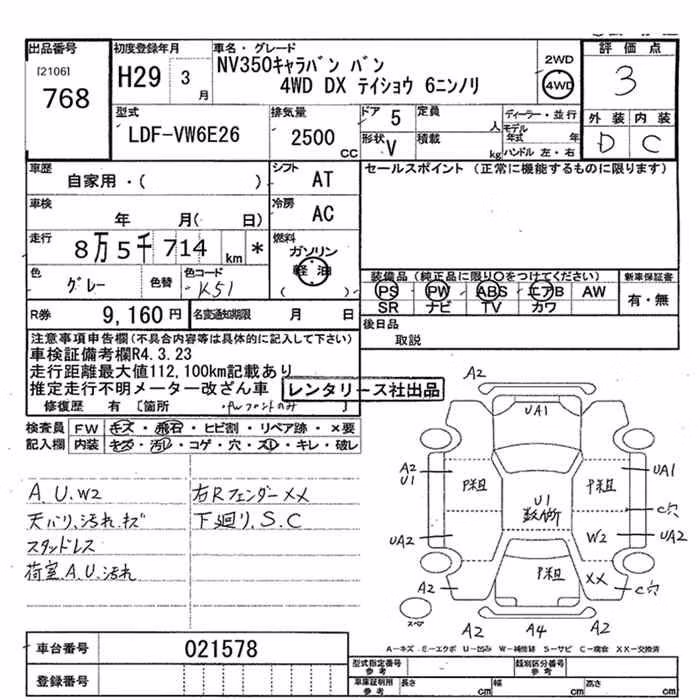 出品番号 初度登録年月 車名・グレード 2WD 評価点
[2106] H29 3月 NV350キャラバン バン 4WD 3
768 4WD DX テイショウ 6ニンノリ
型式 排気量 ドア 5 定員 人 ディーラー・並行 外装 内装
LDF-VW6E26 2500 CC 形状 V 積載 kg モデル年式 年 D C
ハンドル 左・右
車歴 自家用・( ) シフト AT セールスポイント (正常に機能するものに限ります)
車検 年 月( 日) 冷房 AC
走行 8万5千714 km * 燃料 ガソリン
軽油
( )
色 グレー 色替 色コード K51 装備品 (純正品に限り○をつけてください) 新車保証書
PS PW ABS エアB AW 有・無
R券 9,160円 名変通知期限 月 日 SR ナビ TV カワ
後日品
取説
注意事項申告欄(不具合内容等は具体的に記入して下さい)
車検証備考欄R4.3.23
走行距離最大値112,100km記載あり
推定走行不明メーター改ざん車 レンタリース社出品
修復歴 有 [箇所
検査員 FW キズ・飛石・ヒビ割・リペア跡・×要
記入欄 内装 キズ・汚レ・コゲ・穴・スレ・キレ・破レ
A.U.W2 右Rフェンダー××
天バリ、汚れ、キズ 下廻り.S.C
スタッドレス
荷室.A.U.汚れ
A2
UA1
A2
U1 P粗 U1 P粗 UA1
C穴
UA2 W2 UA2
P粗 ××
A2 C穴
スペア A2 A4 A2
A-キズ E-エクボ U-凹み W-補修跡 S-サビ C-腐食 XX-交換済
車台番号 021578 型式指定番号 参考 類別区分番号 参考
登録番号 車庫証明用 参考 長さ cm 幅 cm 高さ cm